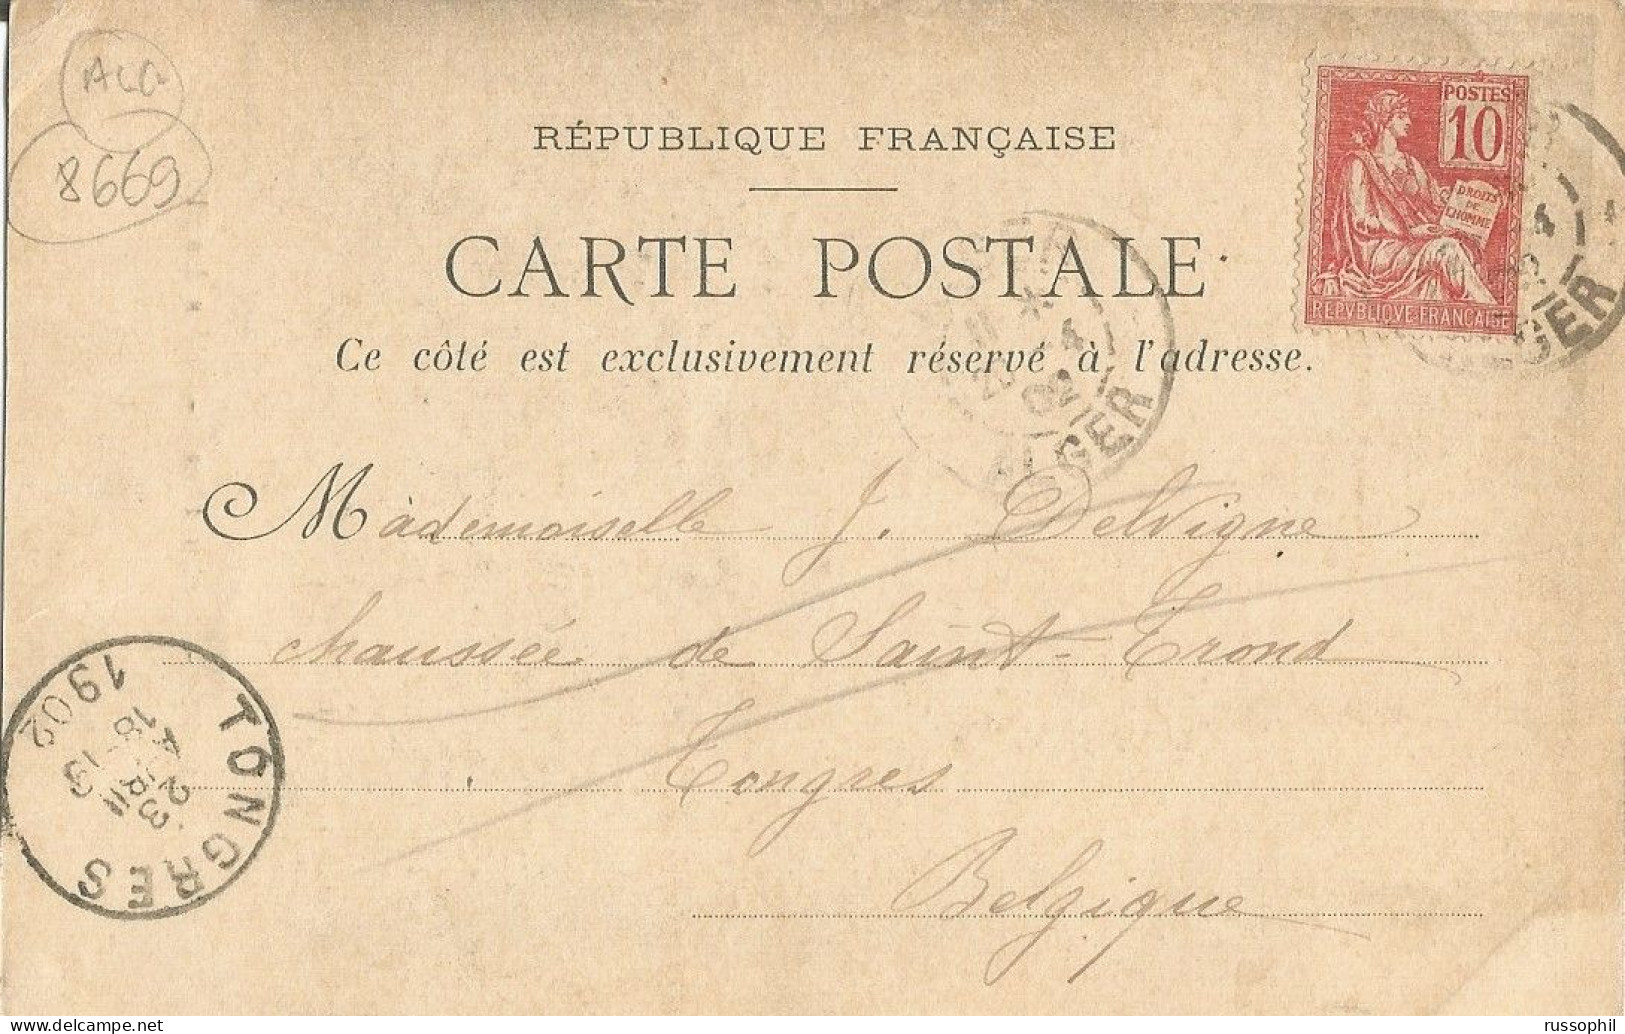 ALG
8669
RÉPUBLIQUE FRANÇAISE
POSTES
10
DROITS
DE
L'HOMME
REPVBLIQVE FRANÇAISE
CARTE POSTALE
Ce côté est exclusivement réservé à l'adresse.
4
02
ALGER
ALGER
Mademoiselle J. Delvigne
chaussée de Saint-Trond
Tongres
Belgique
TONGRES
18-19
23
AVRIL
1902
russophil
delcampe.net